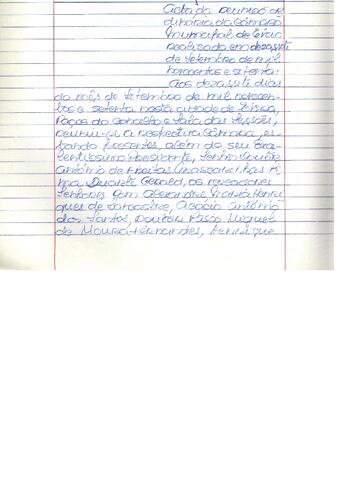 Acta da reunião or
dinária da Câmara
Municipal de Évora
realizada em dezassete
de Setembro de mil
novecentos e setenta.
Aos dezassete dias
do mês de Setembro de mil novecen-
tos e setenta nesta cidade de Évora,
Paços do Concelho e sala das sessões,
reuniu-se a respectiva Câmara, es-
tando presentes, além do seu Exce-
lentíssimo Presidente, Senhor Doutor
António de Freitas Mascarenhas
Duarte Gerald, os vereadores
Senhores Dom Alexandre Maria Henri
ques de Lancastre, Acácio António
dos Santos, Doutor Vasco Miguel
de Moura Fernandes, Henrique